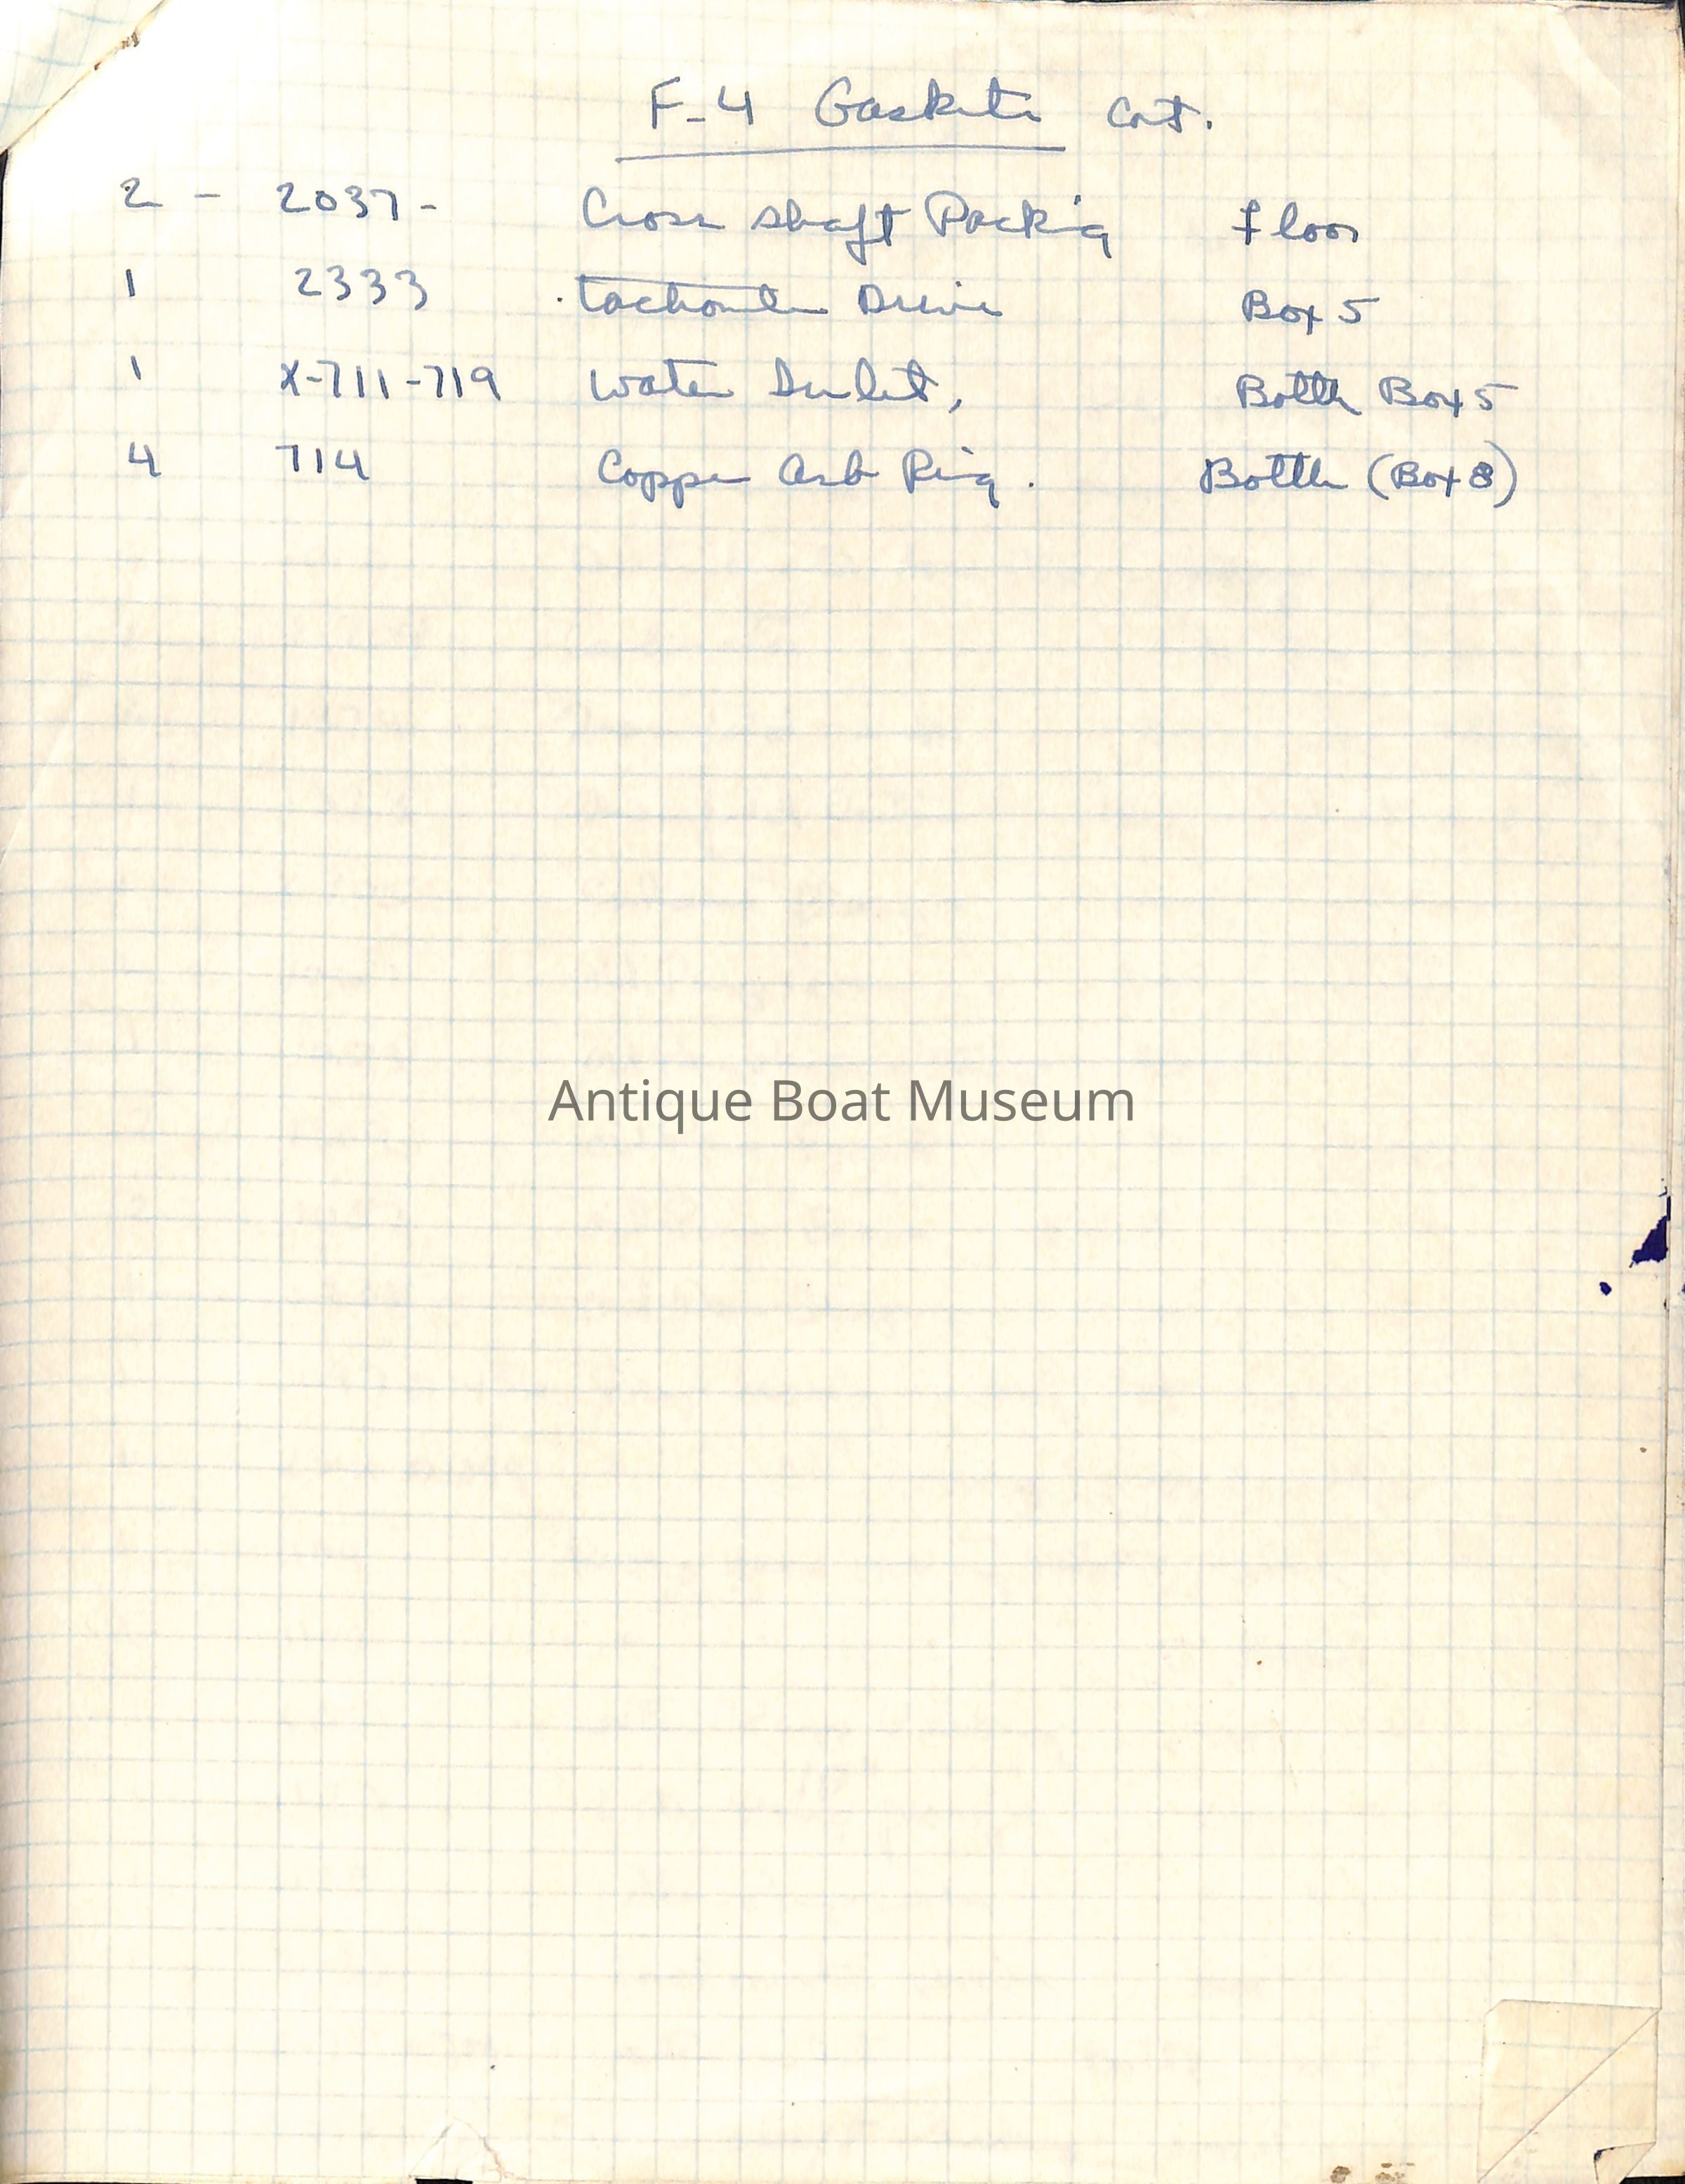 F-4 Gaskets Cont.
2 - 2037 - Cross shaft Packing floor
1 2333 tachometer Drive Box 5
1 X-711-719 Water Inlet, Bottle Box 5
4 714 Copper Asb Ring. Bottle (Box 8)
Antique Boat Museum